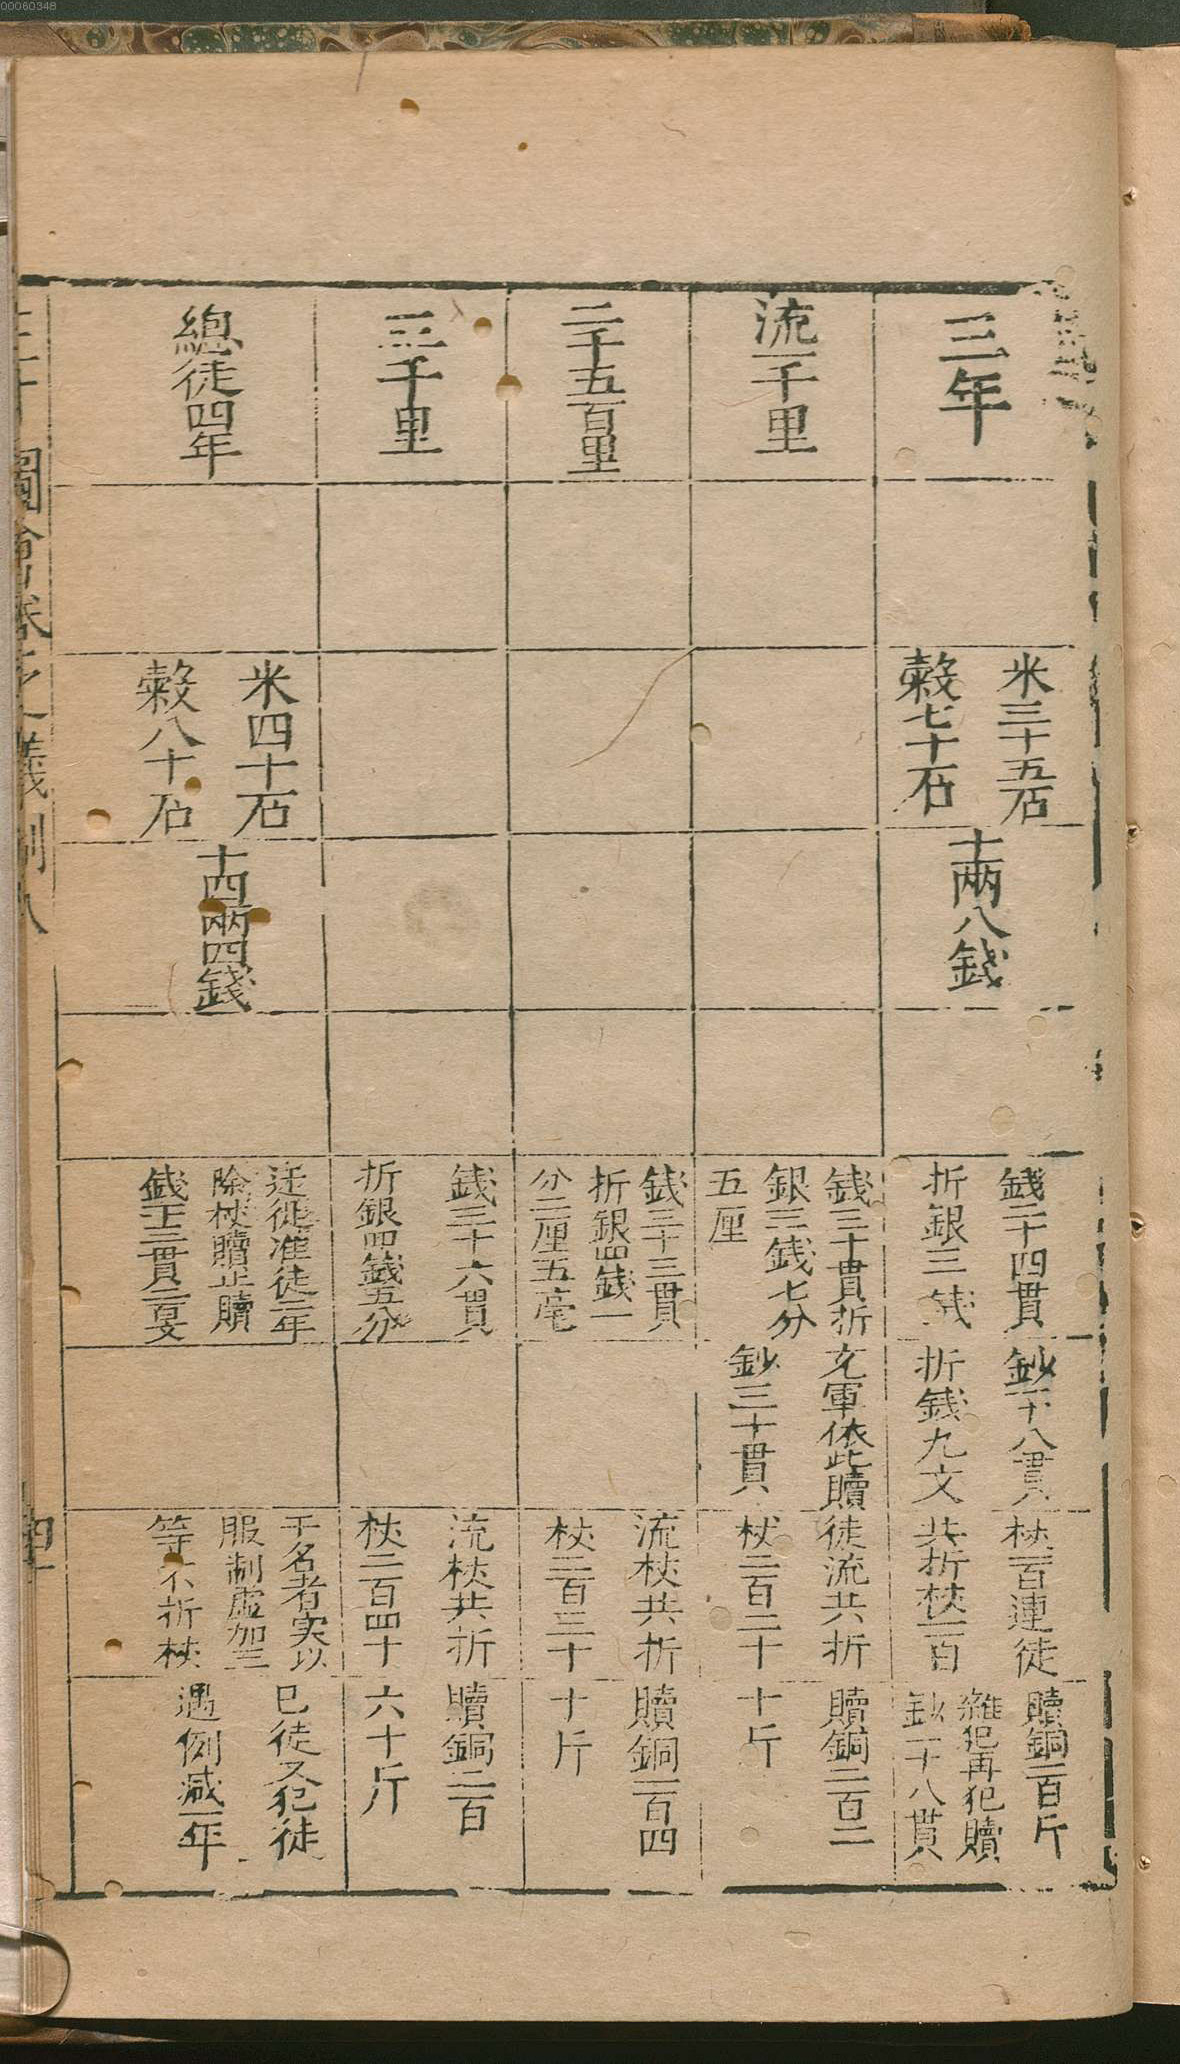 00060348
三年
米三十五石
糓七十石
十兩八錢
錢二十四貫
折銀三錢
鈔十八貫
折錢九文
杖一百連徒
共折杖二百
贖銅一百斤
雜犯再犯贖
鈔十八貫
流二千里
錢三十貫折
銀三錢七分
五厘
充軍依此贖
鈔三十貫
徒流共折
杖二百二十
贖銅二百二
十斤
二千五百里
錢三十三貫
折銀四錢一
分二厘五毫
流杖共折
杖二百三十
贖銅二百四
十斤
三千里
錢三十六貫
折銀四錢五分
流杖共折
杖二百四十
贖銅二百
六十斤
總徒四年
米四十石
糓八十石
十四兩四錢
迁徙准徒二年
除杖贖止贖
于名者实以
服制虛加三
等不折杖
已徒又犯徒
遇例减一年
圖會卷之儀制八
四